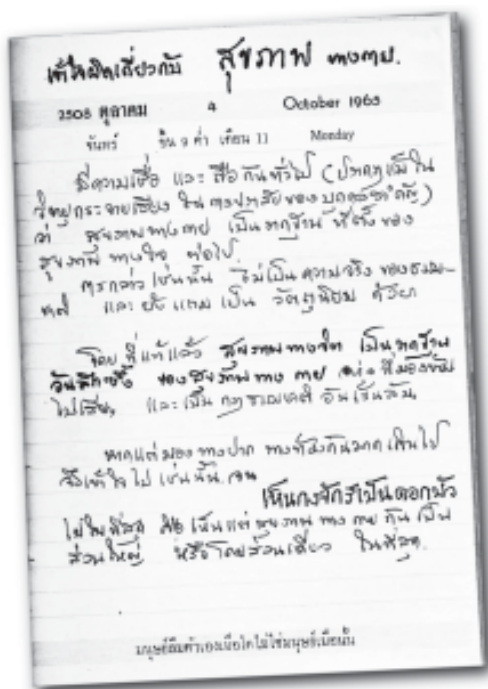 เข้าใจผิดเกี่ยวกับ สุขภาพ ทางกาย.
2508 ตุลาคม 4 October 1965
จันทร์ ขึ้น ๙ ค่ำ เดือน 11 Monday
มีความเชื่อ และ ถือ กันทั่วไป (ปรากฏแม้ใน
วิทยุกระจายเสียง ใน การปราศรัยของบุคคลสำคัญ)
ว่า สุขภาพทางกาย เป็นรากฐาน ที่ตั้งของ
สุขภาพ ทางใจ ต่อไป.
การกล่าว เช่นนั้น ไม่เป็น ความจริง ของธรรม-
ชาติ และ ยัง แถม เป็น วัตถุนิยม ด้วย.
โดย ที่แท้แล้ว สุขภาพทางจิต เป็นรากฐาน
อันลึกซึ้ง ของสุขภาพทาง กาย ที่มองข้าม
ไปเสีย, และเป็น กฎ ธรรมชาติ อันเร้นลับ.
หากแต่มอง ทางปาก ทางที่ เกินไป
จึงเข้าใจไป เช่นนั้น จน
เห็นกงจักรเป็นดอกบัว
ไปในที่สุด คือ เห็นแต่ สุขภาพ ทาง กาย กัน เป็น
ส่วนใหญ่ หรือโดยส่วนเดียว ในที่สุด.
มนุษย์ลืมตัวเองเมื่อใดไม่ใช่มนุษย์เมื่อนั้น